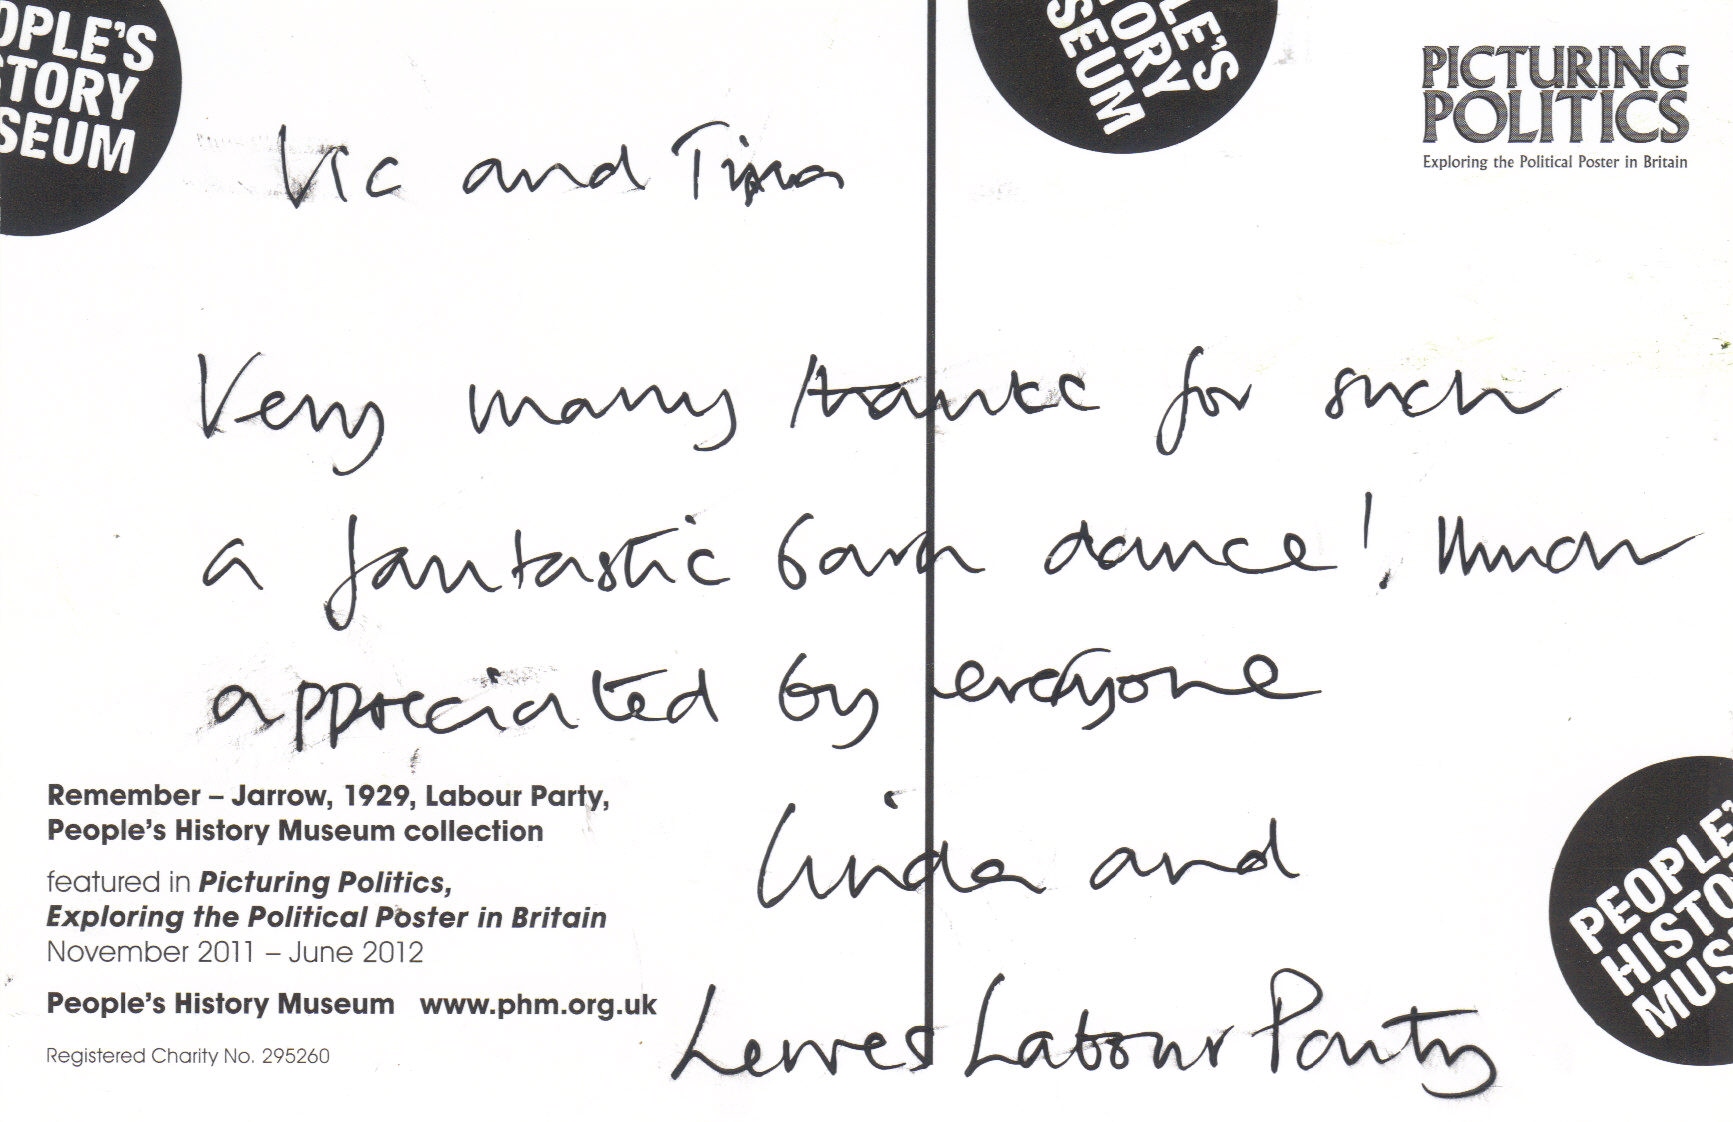 OPLE'S
STORY
SEUM
LE'S
ORY
SEUM
PICTURING
POLITICS
Exploring the Political Poster in Britain
Vic and Tina
Very many thanks for such
a fantastic barn dance! Much
appreciated by everyone
Linda and
Lewes Labour Party
Remember – Jarrow, 1929, Labour Party,
People's History Museum collection
featured in Picturing Politics,
Exploring the Political Poster in Britain
November 2011 – June 2012
People's History Museum www.phm.org.uk
Registered Charity No. 295260
PEOPLE'
HISTO
MUS